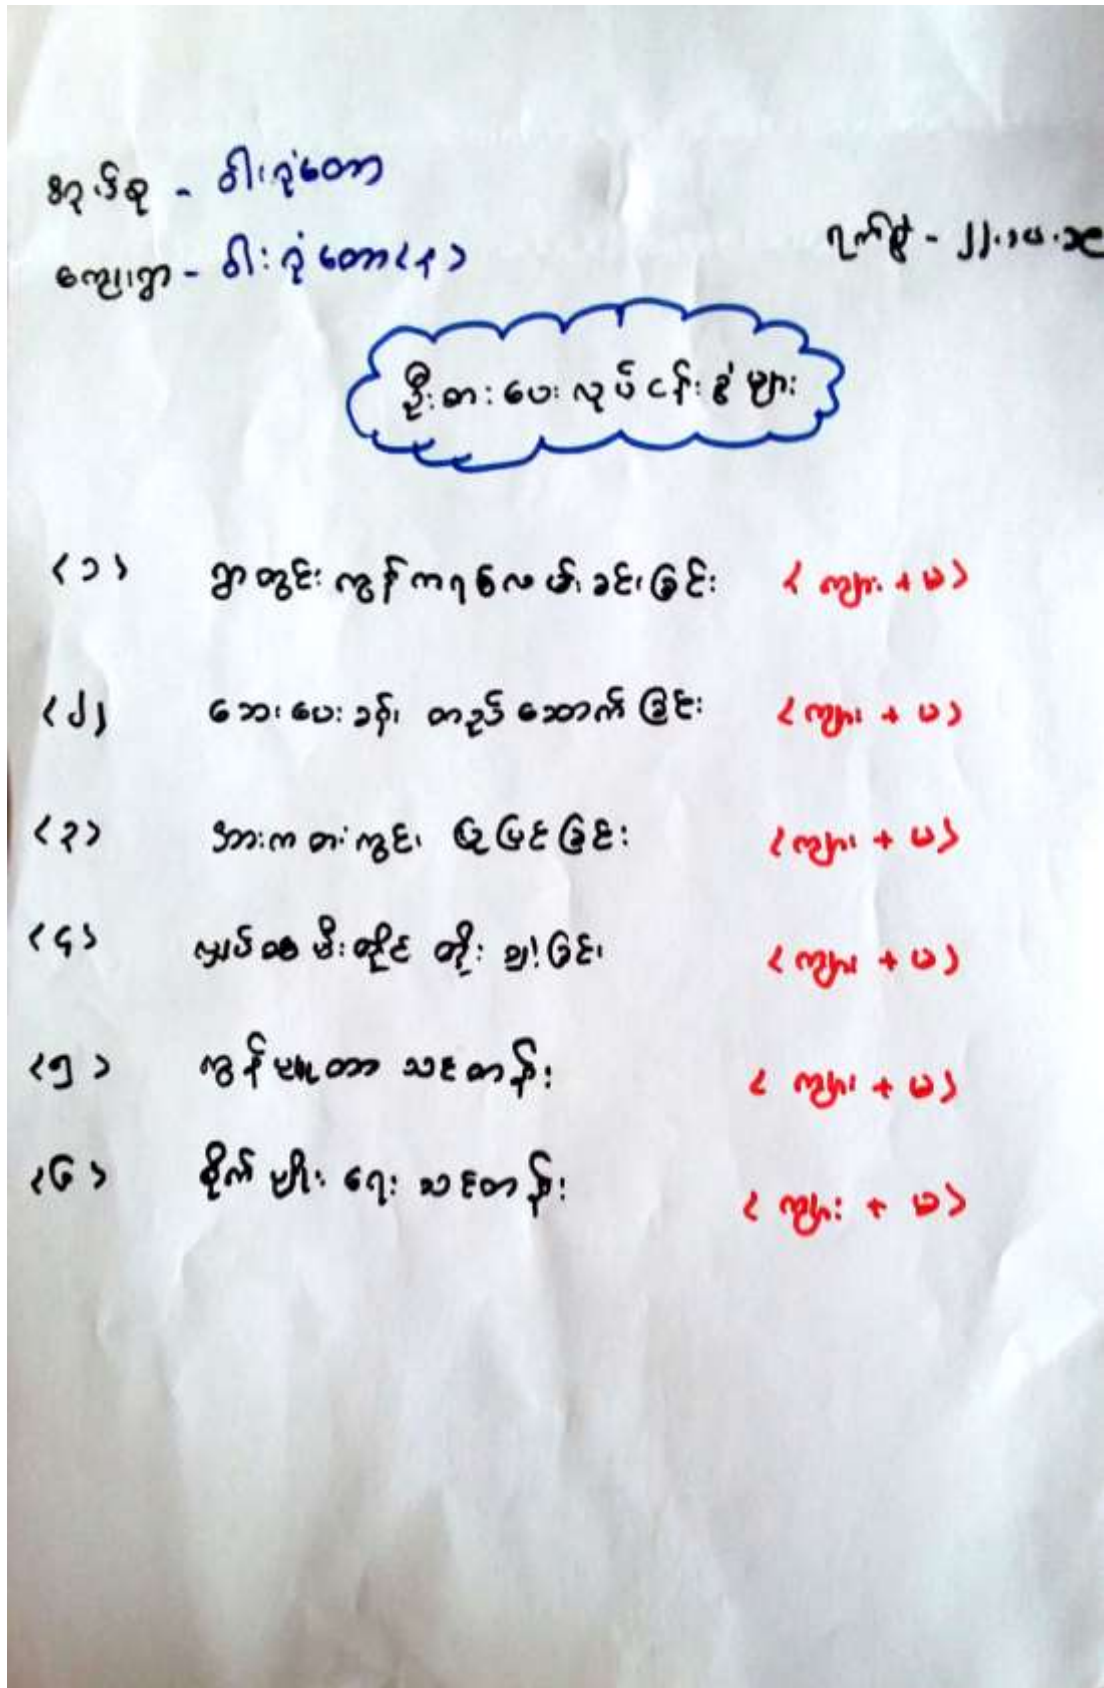 အုပ်စု - ဝါးဂုံတော
ကျေးရွာ - ဝါးဂုံတော (၃)
ရက်စွဲ - ၂၂.၁၀.၁၉
ဦးစားပေးလုပ်ငန်းစဉ်များ
(၁) ရွာတွင်းကွန်ကရစ်လမ်းခင်းခြင်း (ကျား + မ)
(၂) ဆေးပေးခန်း တည်ဆောက်ခြင်း (ကျား + မ)
(၃) အားကစားကွင်း ပြုပြင်ခြင်း (ကျား + မ)
(၄) လျှပ်စစ်မီးတိုင် တိုးချဲ့ခြင်း (ကျား + မ)
(၅) ကွန်ပျူတာ သင်တန်း (ကျား + မ)
(၆) စိုက်ပျိုးရေး သင်တန်း (ကျား + မ)